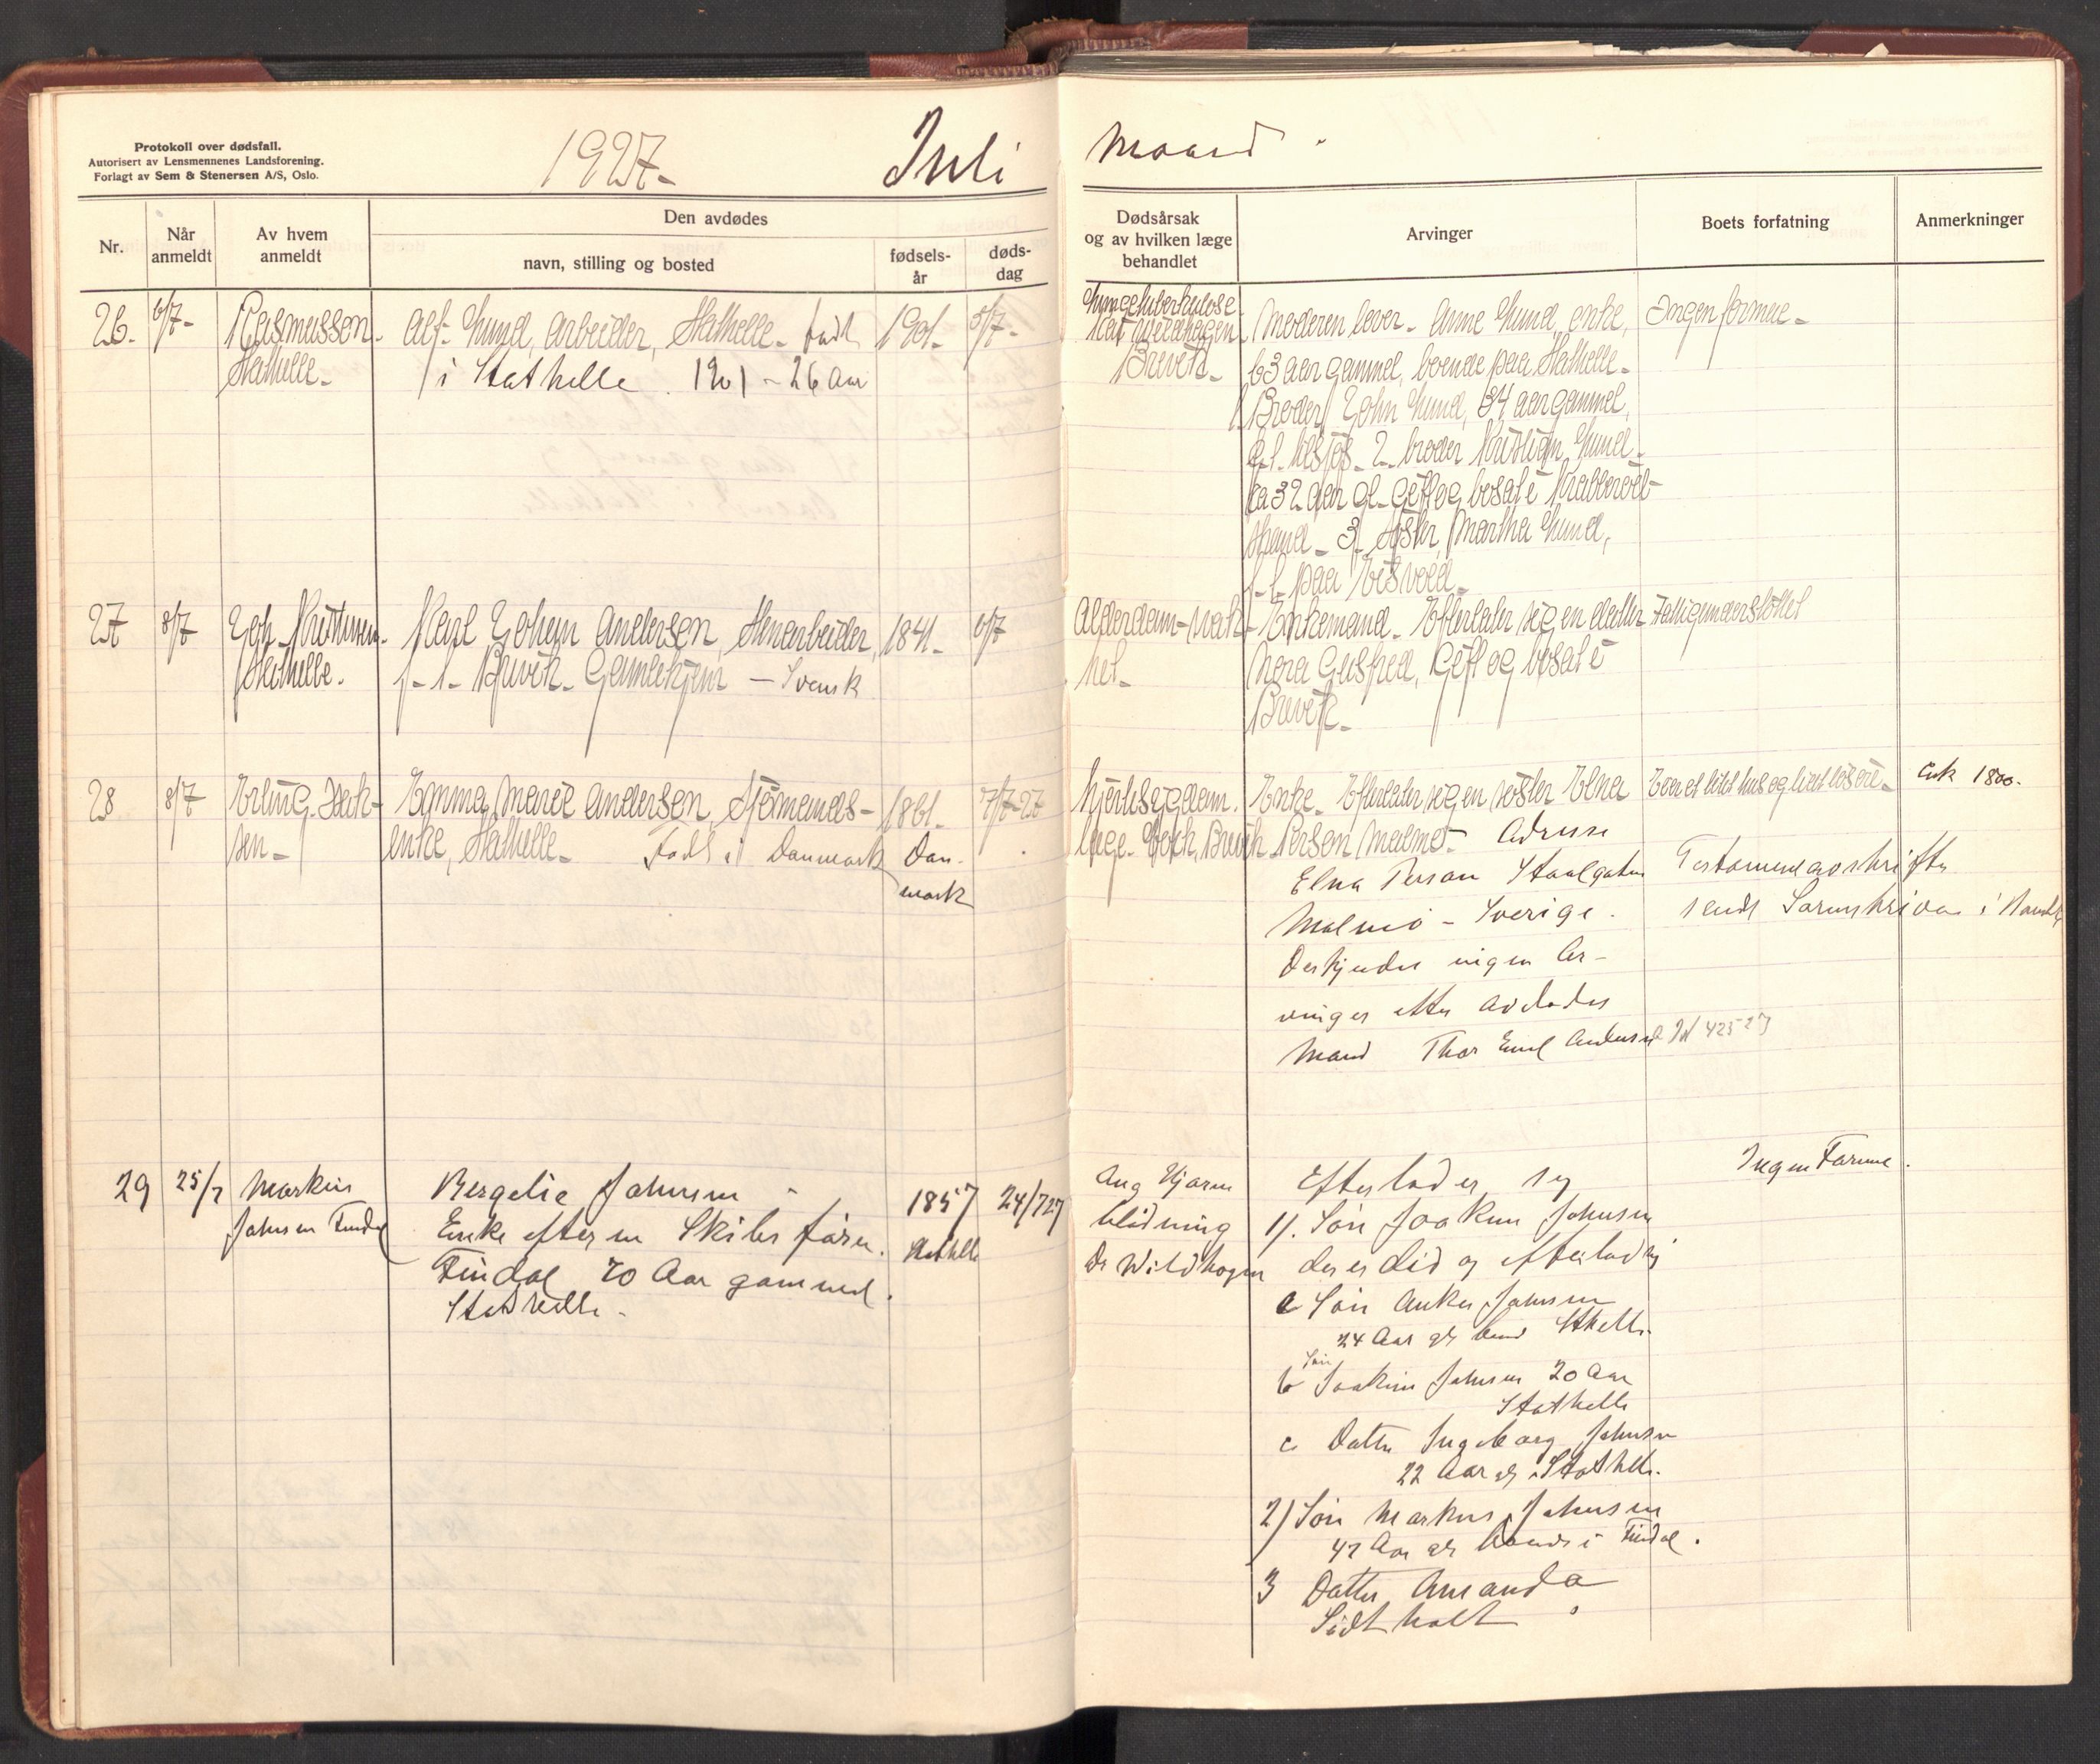 Protokoll over dødsfall.
Autorisert av Lensmennenes Landsforening.
Forlagt av Sem & Stenersen A/S, Oslo.
1927- Juli Maaned.
Nr.
Når anmeldt
Av hvem anmeldt
Den avdødes
navn, stilling og bosted
fødsels-
år
døds-
dag
Dødsårsak
og av hvilken læge
behandlet
Arvinger
Boets forfatning
Anmerkninger
26. 6/7- Rasmussen
Stathelle-
Alf Lund, Arbeider, Stathelle- født 1901- 5/7-
i Stathelle. 1901 - 26 Aar
Lungetuberkulose
Brevik-
Moderen lever- Anne Lund, enke,
63 aar gammel, boende paa Stathelle-
1 Broder, John Lund, 34 aar gammel,
2- broder Kristian Lund-
ca 32 aar gl- Gift og bosat i
3- Søster, Martha Lund,
f-t- paa Eidsvold-
Ingen formue-
27 8/7 Joh. Kristensen-
Stathelle.
Karl Johan Andersen, Stenarbeider, 1841- 6/7
f-t- Brevik- Gamlehjem - Svensk
Alderdom-svak-
het-
Enkemand- Efterlater sig en datter
Nora Gusfred, Gift og bosat i
Brevik-
Fattigunderstöttet
28 8/7 Erling Isak-
sen-
Emma Marie Andersen, Sjömands- 1861- 7/7-27
enke, Stathelle- Född i Danmark Dan-
mark
Hjertesygdom.
læge- Brevik
Enke- Efterlater sig en søster Elna
Person Malmø- Adresse
Elna Person Staalgaten
Malmö - Sverige.
Der kjendes ingen Ar-
vinger efter Avdødes
Mand Thor Emil Andersen
Eier et litet hus og litet lösöre-
Testamentavskrifter
sendt Sorenskriveren i
Jd 425 27
Ca kr 1800.
29 25/7 Markus
Johnsen Findal
Bergelie Johnsen -
Enke efter en Skibsförer.
Findal 70 Aar gammel.
Stathelle.
1857 24/7 27
Stathelle
Aug Hjerne
blödning
Dr Wildhagen
Efterlader sig
1). Sön Joakim Johnsen
der er död og efterlod sig
a Sön Anker Johnsen
24 Aar gl boende Stathelle.
Sön
b Joakim Johnsen 20 Aar
Stathelle
c Datter Ingeborg Johnsen
22 Aar gl Stathelle.
2) Sön Markus Johnsen
47 Aar gl boende i Findal.
3 Datter Amanda
Södtholt
Ingen Formue.